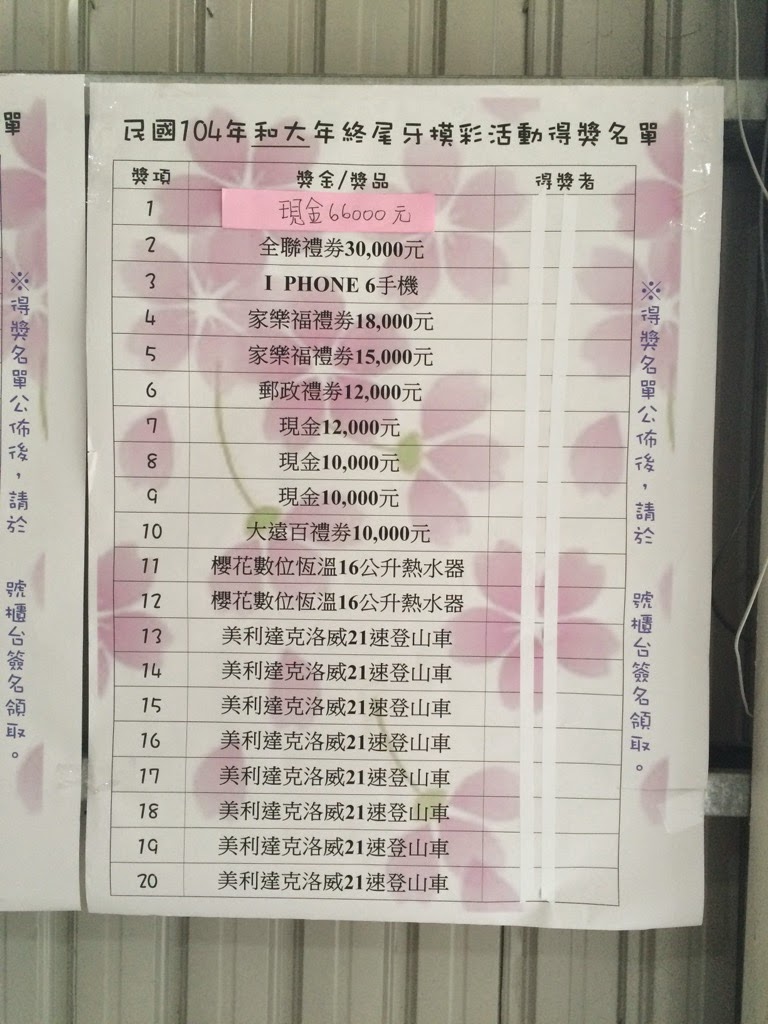 單
※得獎名單公佈後，請於　號櫃台簽名領取。
民國104年和大年終尾牙摸彩活動得獎名單
獎項 獎金/獎品 得獎者
1 現金66000元
2 全聯禮券30,000元
3 I PHONE 6手機
4 家樂福禮券18,000元
5 家樂福禮券15,000元
6 郵政禮券12,000元
7 現金12,000元
8 現金10,000元
9 現金10,000元
10 大遠百禮券10,000元
11 櫻花數位恆溫16公升熱水器
12 櫻花數位恆溫16公升熱水器
13 美利達克洛威21速登山車
14 美利達克洛威21速登山車
15 美利達克洛威21速登山車
16 美利達克洛威21速登山車
17 美利達克洛威21速登山車
18 美利達克洛威21速登山車
19 美利達克洛威21速登山車
20 美利達克洛威21速登山車
※得獎名單公佈後，請於　號櫃台簽名領取。